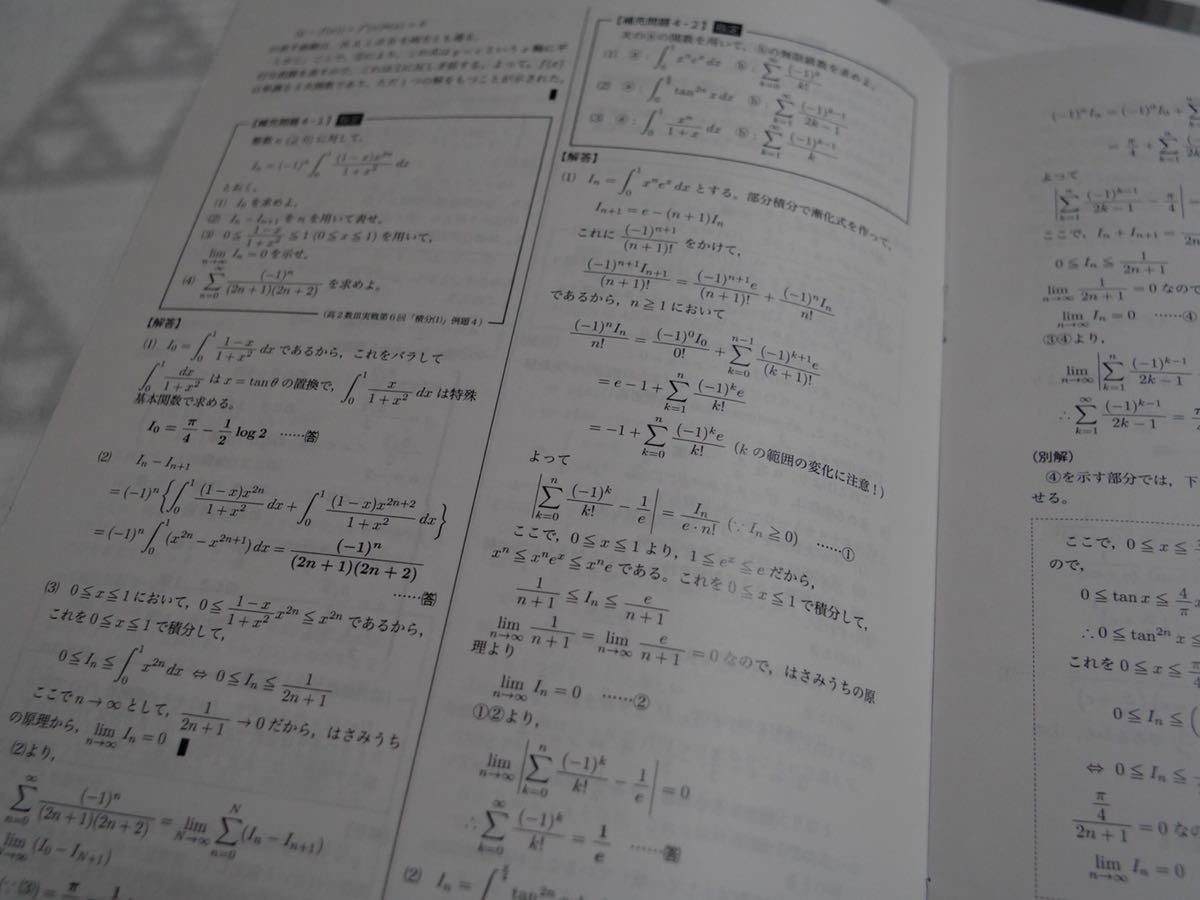 【補充問題4-1】
整数 n (≧0) に対して,
I_n = (-1)^n ∫_0^1 (1-x)x^{2n}/(1+x^2) dx
とおく。
(1) I_0 を求めよ。
(2) I_n - I_{n+1} を n を用いて表せ。
(3) 0 ≦ (1-x)/(1+x^2) ≦ 1 (0≦x≦1) を用いて,
lim_{n→∞} I_n = 0 を示せ。
(4) Σ_{n=0}^∞ (-1)^n/((2n+1)(2n+2)) を求めよ。
(高2数Ⅲ実戦第6回「積分(1)」例題4)
【解答】
(1) I_0 = ∫_0^1 (1-x)/(1+x^2) dx であるから, これをバラして
∫_0^1 dx/(1+x^2) は x = tanθ の置換で, ∫_0^1 x/(1+x^2) dx は特殊
基本関数で求める。
I_0 = π/4 - 1/2 log 2 ……答
(2) I_n - I_{n+1}
= (-1)^n {∫_0^1 (1-x)x^{2n}/(1+x^2) dx + ∫_0^1 (1-x)x^{2n+2}/(1+x^2) dx}
= (-1)^n ∫_0^1 (x^{2n} - x^{2n+1}) dx = (-1)^n/((2n+1)(2n+2))
……答
(3) 0≦x≦1 において, 0 ≦ (1-x)/(1+x^2) x^{2n} ≦ x^{2n} であるから,
これを 0≦x≦1 で積分して,
0 ≦ I_n ≦ ∫_0^1 x^{2n} dx ⇔ 0 ≦ I_n ≦ 1/(2n+1)
ここで n→∞ として, 1/(2n+1) → 0 だから, はさみうち
の原理から, lim_{n→∞} I_n = 0
(2)より,
Σ_{n=0}^∞ (-1)^n/((2n+1)(2n+2)) = lim_{N→∞} Σ_{n=0}^N (I_n - I_{n+1})
lim_{N→∞} (I_0 - I_{N+1})
(∵(3)) = π
【補充問題4-2】
次のⓐの関数を用いて, ⓑの無限級数を求めよ。
(1) ⓐ: ∫_0^1 x^n e^x dx ⓑ: Σ_{k=0}^∞ (-1)^k/k!
(2) ⓐ: ∫_0 tan^{2n} x dx ⓑ: Σ_{k=1}^∞ (-1)^{k-1}/(2k-1)
(3) ⓐ: ∫_0^1 x^n/(1+x) dx ⓑ: Σ_{k=1}^∞ (-1)^{k-1}/k
【解答】
(1) I_n = ∫_0^1 x^n e^x dx とする。部分積分で漸化式を作って,
I_{n+1} = e - (n+1)I_n
これに (-1)^{n+1}/(n+1)! をかけて,
(-1)^{n+1}I_{n+1}/(n+1)! = (-1)^{n+1}e/(n+1)! + (-1)^n I_n/n!
であるから, n≧1 において
(-1)^n I_n/n! = (-1)^0 I_0/0! + Σ_{k=0}^{n-1} (-1)^{k+1}e/(k+1)!
= e - 1 + Σ_{k=1}^n (-1)^k e/k!
= -1 + Σ_{k=0}^n (-1)^k e/k! (k の範囲の変化に注意!)
よって
|Σ_{k=0}^n (-1)^k/k! - 1/e| = I_n/(e·n!) (∵ I_n ≧ 0) ……①
ここで, 0≦x≦1 より, 1≦e^x≦e だから,
x^n ≦ x^n e^x ≦ x^n e である。これを 0≦x≦1 で積分して,
1/(n+1) ≦ I_n ≦ e/(n+1)
lim_{n→∞} 1/(n+1) = lim_{n→∞} e/(n+1) = 0 なので, はさみうちの原
理より
lim_{n→∞} I_n = 0 ……②
①②より,
lim_{n→∞} |Σ_{k=0}^n (-1)^k/k! - 1/e| = 0
∴ Σ_{k=0}^∞ (-1)^k/k! = 1/e ……答
(2) I_n = ∫ tan^{2n}
(-1)^n I_n = (-1)^0 I_0 +
= π/4 + Σ_{k=1} (-1)
よって
|Σ_{k=1}^n (-1)^{k-1}/(2k-1) - π/4|
ここで, I_n + I_{n+1} =
0 ≦ I_n ≦ 1/(2n+1)
lim_{n→∞} 1/(2n+1) = 0 なので
lim_{n→∞} I_n = 0 ……④
③④より,
lim_{n→∞} |Σ_{k=1}^n (-1)^{k-1}/(2k-1)
∴ Σ_{k=1}^∞ (-1)^{k-1}/(2k-1) =
(別解)
④を示す部分では, 下
せる。
ここで, 0 ≦ x ≦
ので,
0 ≦ tan x ≦ 4/π
∴ 0 ≦ tan^{2n} x ≦
これを 0 ≦ x ≦ π/4
0 ≦ I_n ≦
⇔ 0 ≦ I_n ≦
π/4/(2n+1) = 0 なの
lim_{n→∞} I_n = 0